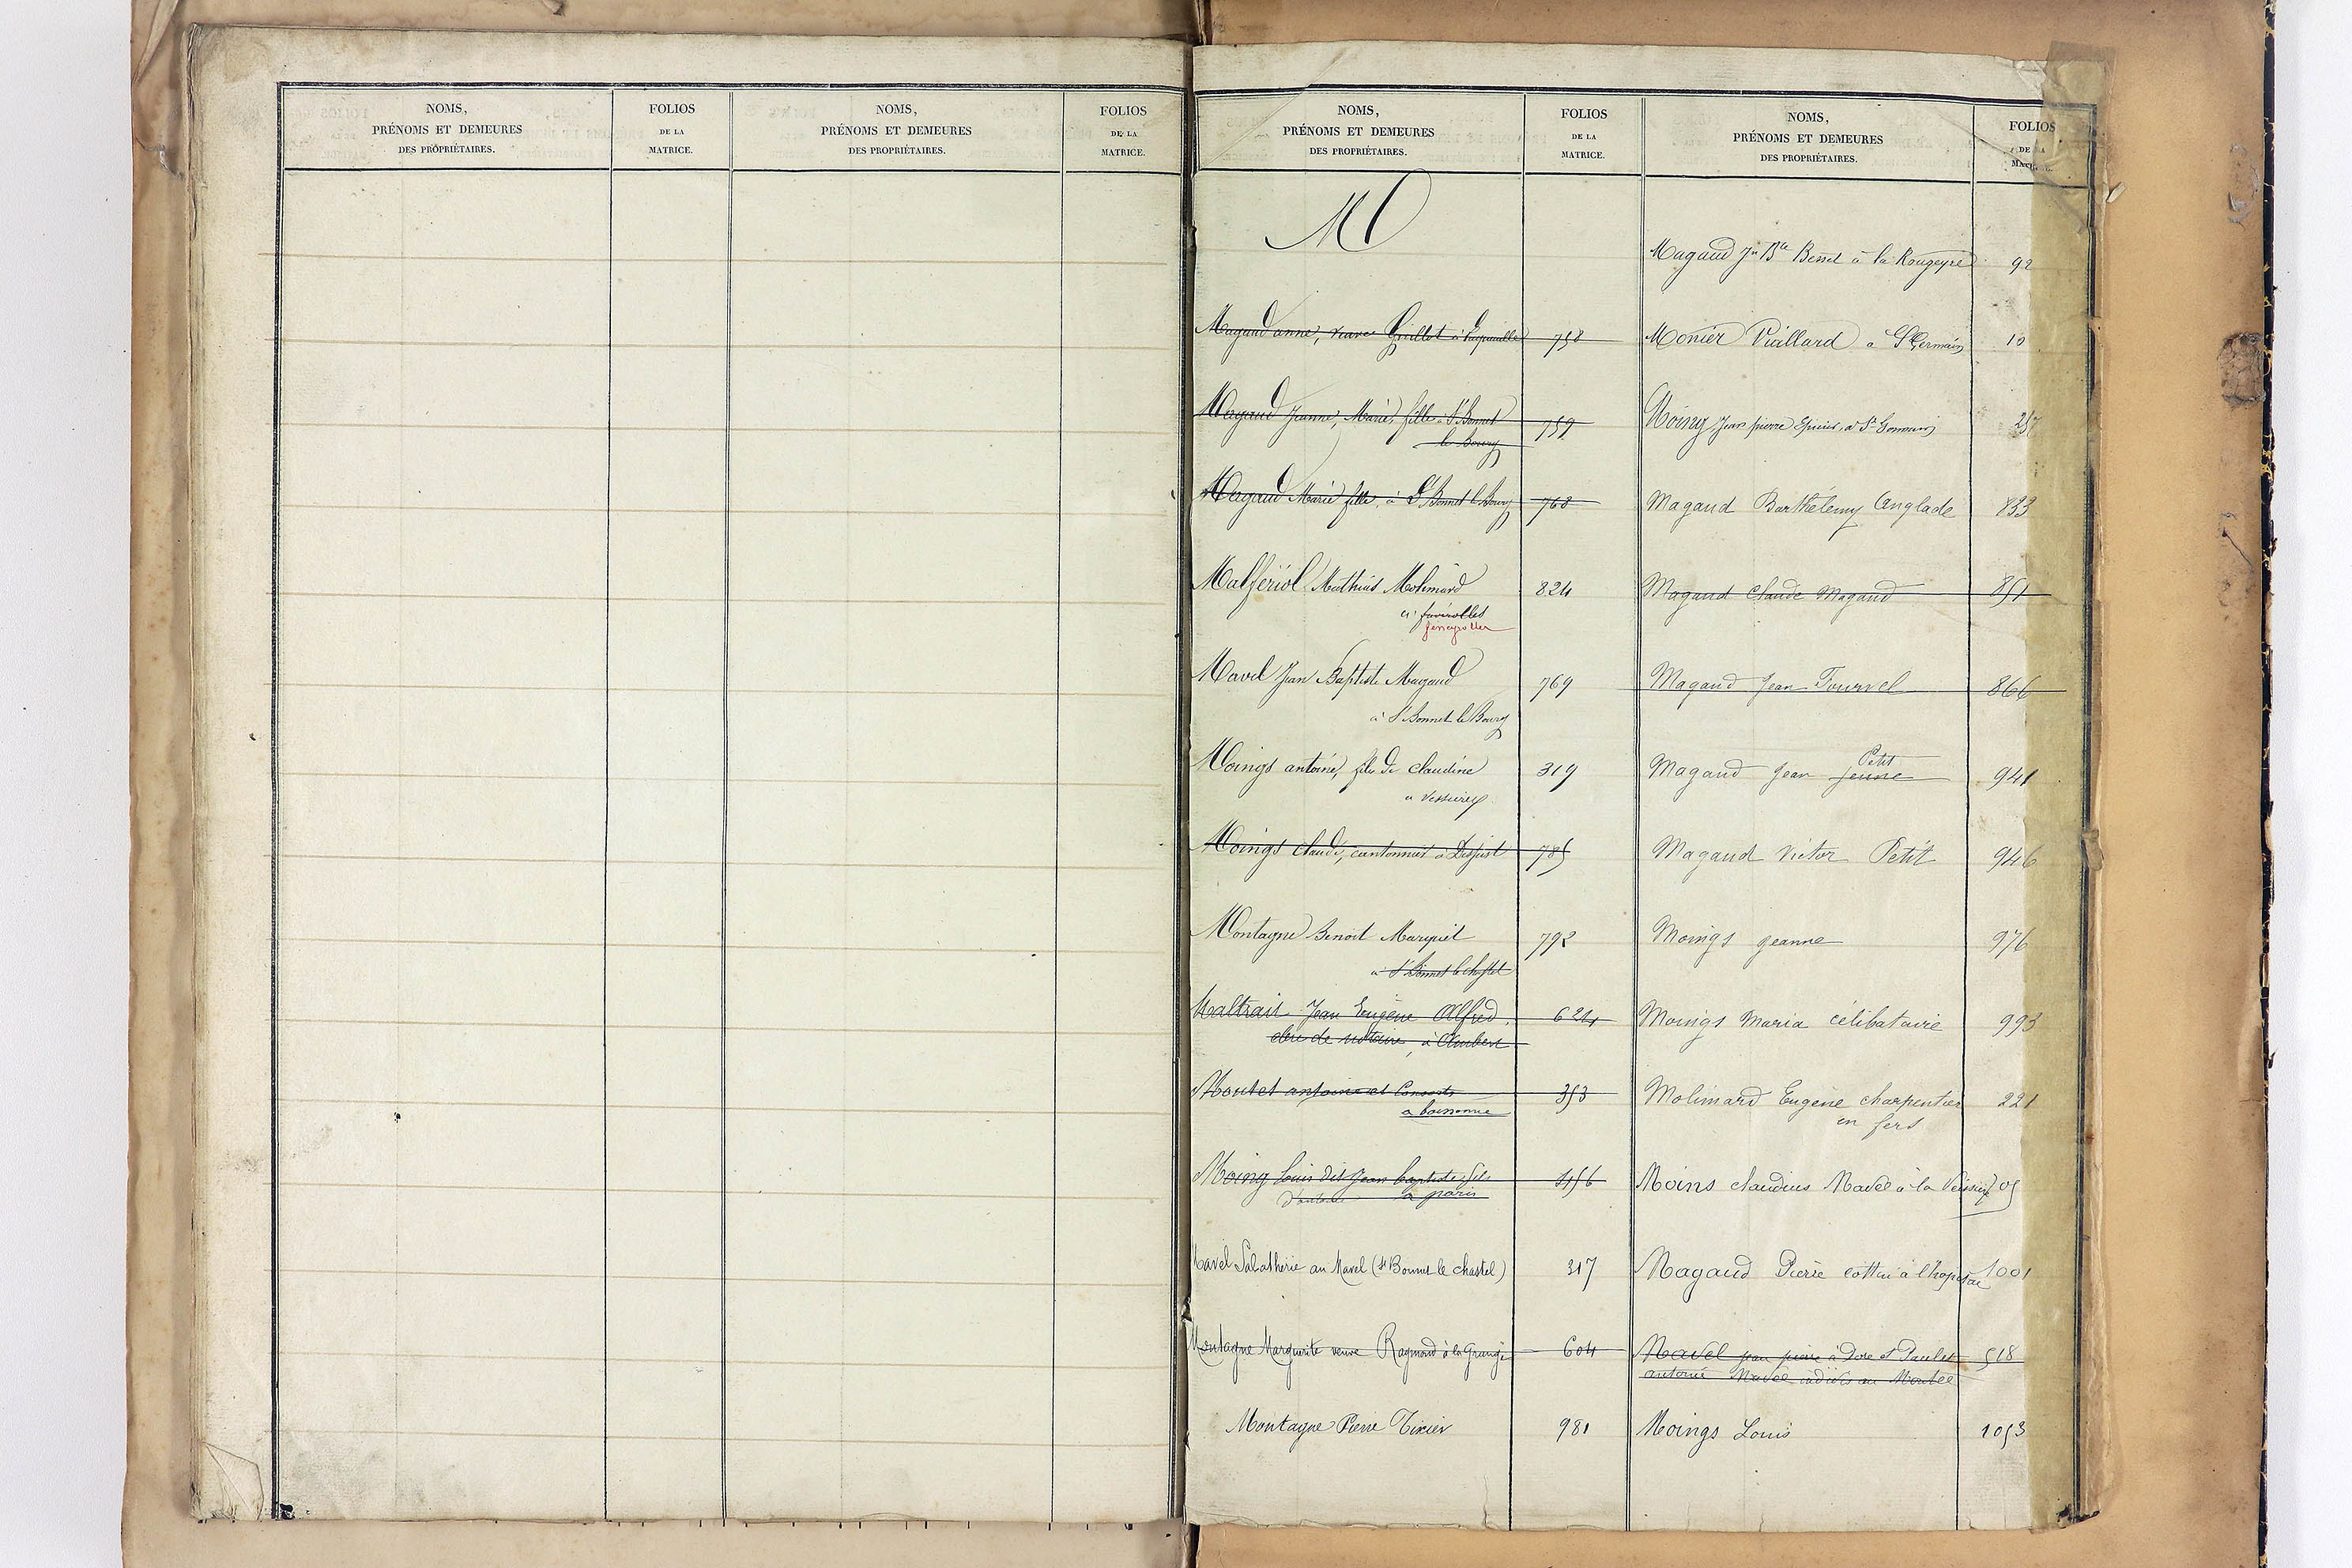 NOMS,
PRÉNOMS ET DEMEURES
DES PROPRIÉTAIRES.
FOLIOS
DE LA
MATRICE.
NOMS,
PRÉNOMS ET DEMEURES
DES PROPRIÉTAIRES.
FOLIOS
DE LA
MATRICE.
NOMS,
PRÉNOMS ET DEMEURES
DES PROPRIÉTAIRES.
FOLIOS
DE LA
MATRICE.
M
Magaud anne, veuve Grillot à 758
Magaud Jeanne, Marie, fille à St Bonnet 759
le Bourg
Magaud Marie fille, à St Bonnet le Bourg 760
Malfériol Mathieu Molimard 824
à faverolles
feneyrolles
Mavel Jean Baptiste Magaud 769
à St Bonnet le Bourg
Moings antoine, fils de claudine 319
a
Moings claude, cantonnier à 785
Montagne Benoit 792
à St Bonnet le chastel
Maltrait Jean Eugène Alfred, 624
clerc de notaire, à Ambert
Moutet antoine et Consorts 353
a
Moing Louis dit Jean baptiste fils 456
à paris
Mavel Sabatherie au Mavel (St Bonnet le chastel) 317
Montagne Marguerite veuve Raymond à la Grange 604
Montagne Pierre Tixier 981
NOMS,
PRÉNOMS ET DEMEURES
DES PROPRIÉTAIRES.
FOLIOS
DE LA
Magaud Jn Bte Besset à la Rougeyre 92
Monier Viallard a St Germain 10
Moing Jean pierre Epicier, à St Germain 257
Magaud Barthélemy Anglade 833
Magaud Claude Magaud 851
Magaud Jean Fournel 866
Petit
Magaud Jean jeune 941
Magaud Victor Petit 946
Moings Jeanne 976
Moings Maria célibataire 993
Molimard Eugène charpentier 221
en fers
Moins claudius Mavel à la
Magaud Pierre cottin à 1001
Mavel jean pierre à Dore et Paulet 518
antoine Mavel
Moings Louis 1053